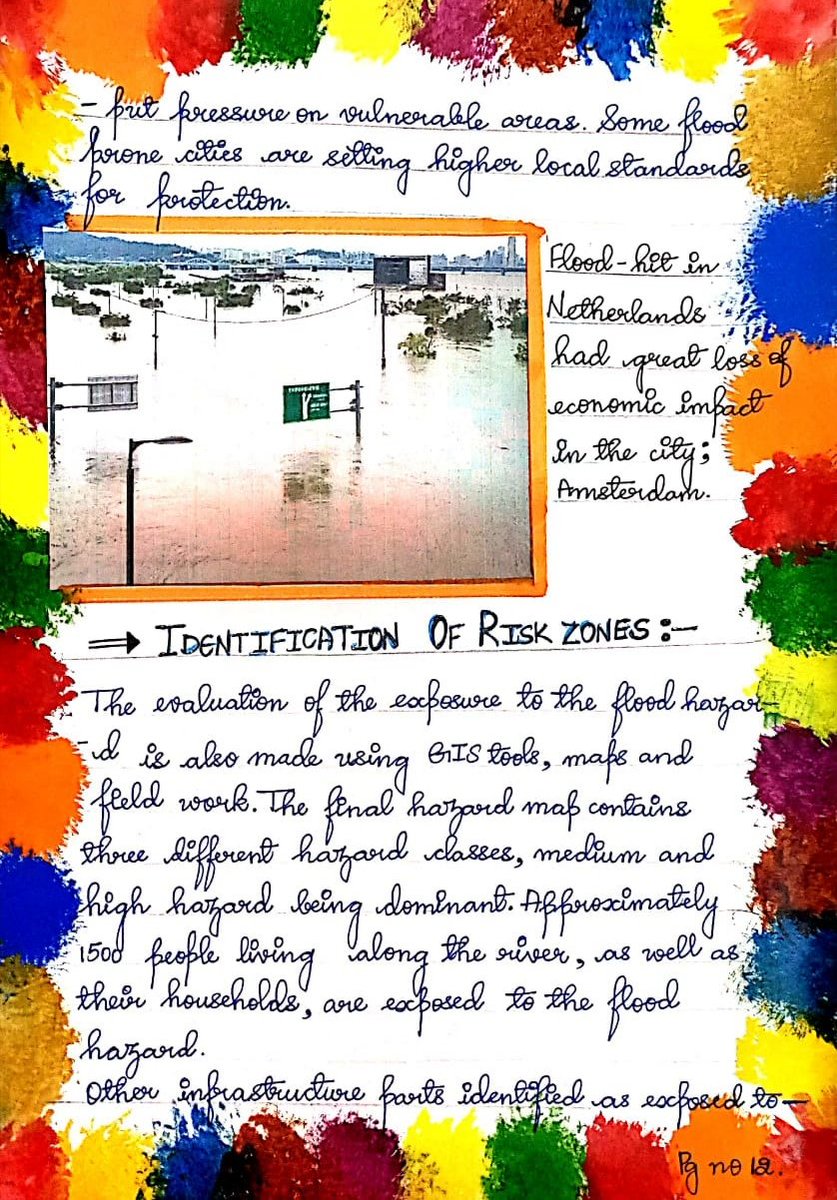 - put pressure on vulnerable areas. Some flood
prone cities are setting higher local standards
for protection.
Flood-hit in
Netherlands
had great loss of
economic impact
in the city;
Amsterdam.
⇒ IDENTIFICATION OF RISK ZONES :-
The evaluation of the exposure to the flood hazar-
-d is also made using GIS tools, maps and
field work. The final hazard map contains
three different hazard classes, medium and
high hazard being dominant. Approximately
1500 people living along the river, as well as
their households, are exposed to the flood
hazard.
Other infrastructure parts identified as exposed to -
Pg no 12.